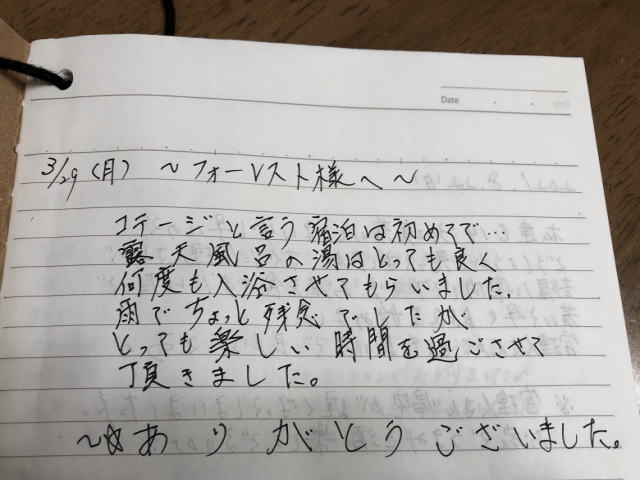 Date
3/29(月) ～フォーレスト様へ～
コテージと言う宿泊は初めてで…
露天風呂の湯はとっても良く
何度も入浴させてもらいました。
雨でちょっと残念でしたが
とっても楽しい時間を過ごさせて
頂きました。
～☆ありがとうございました。